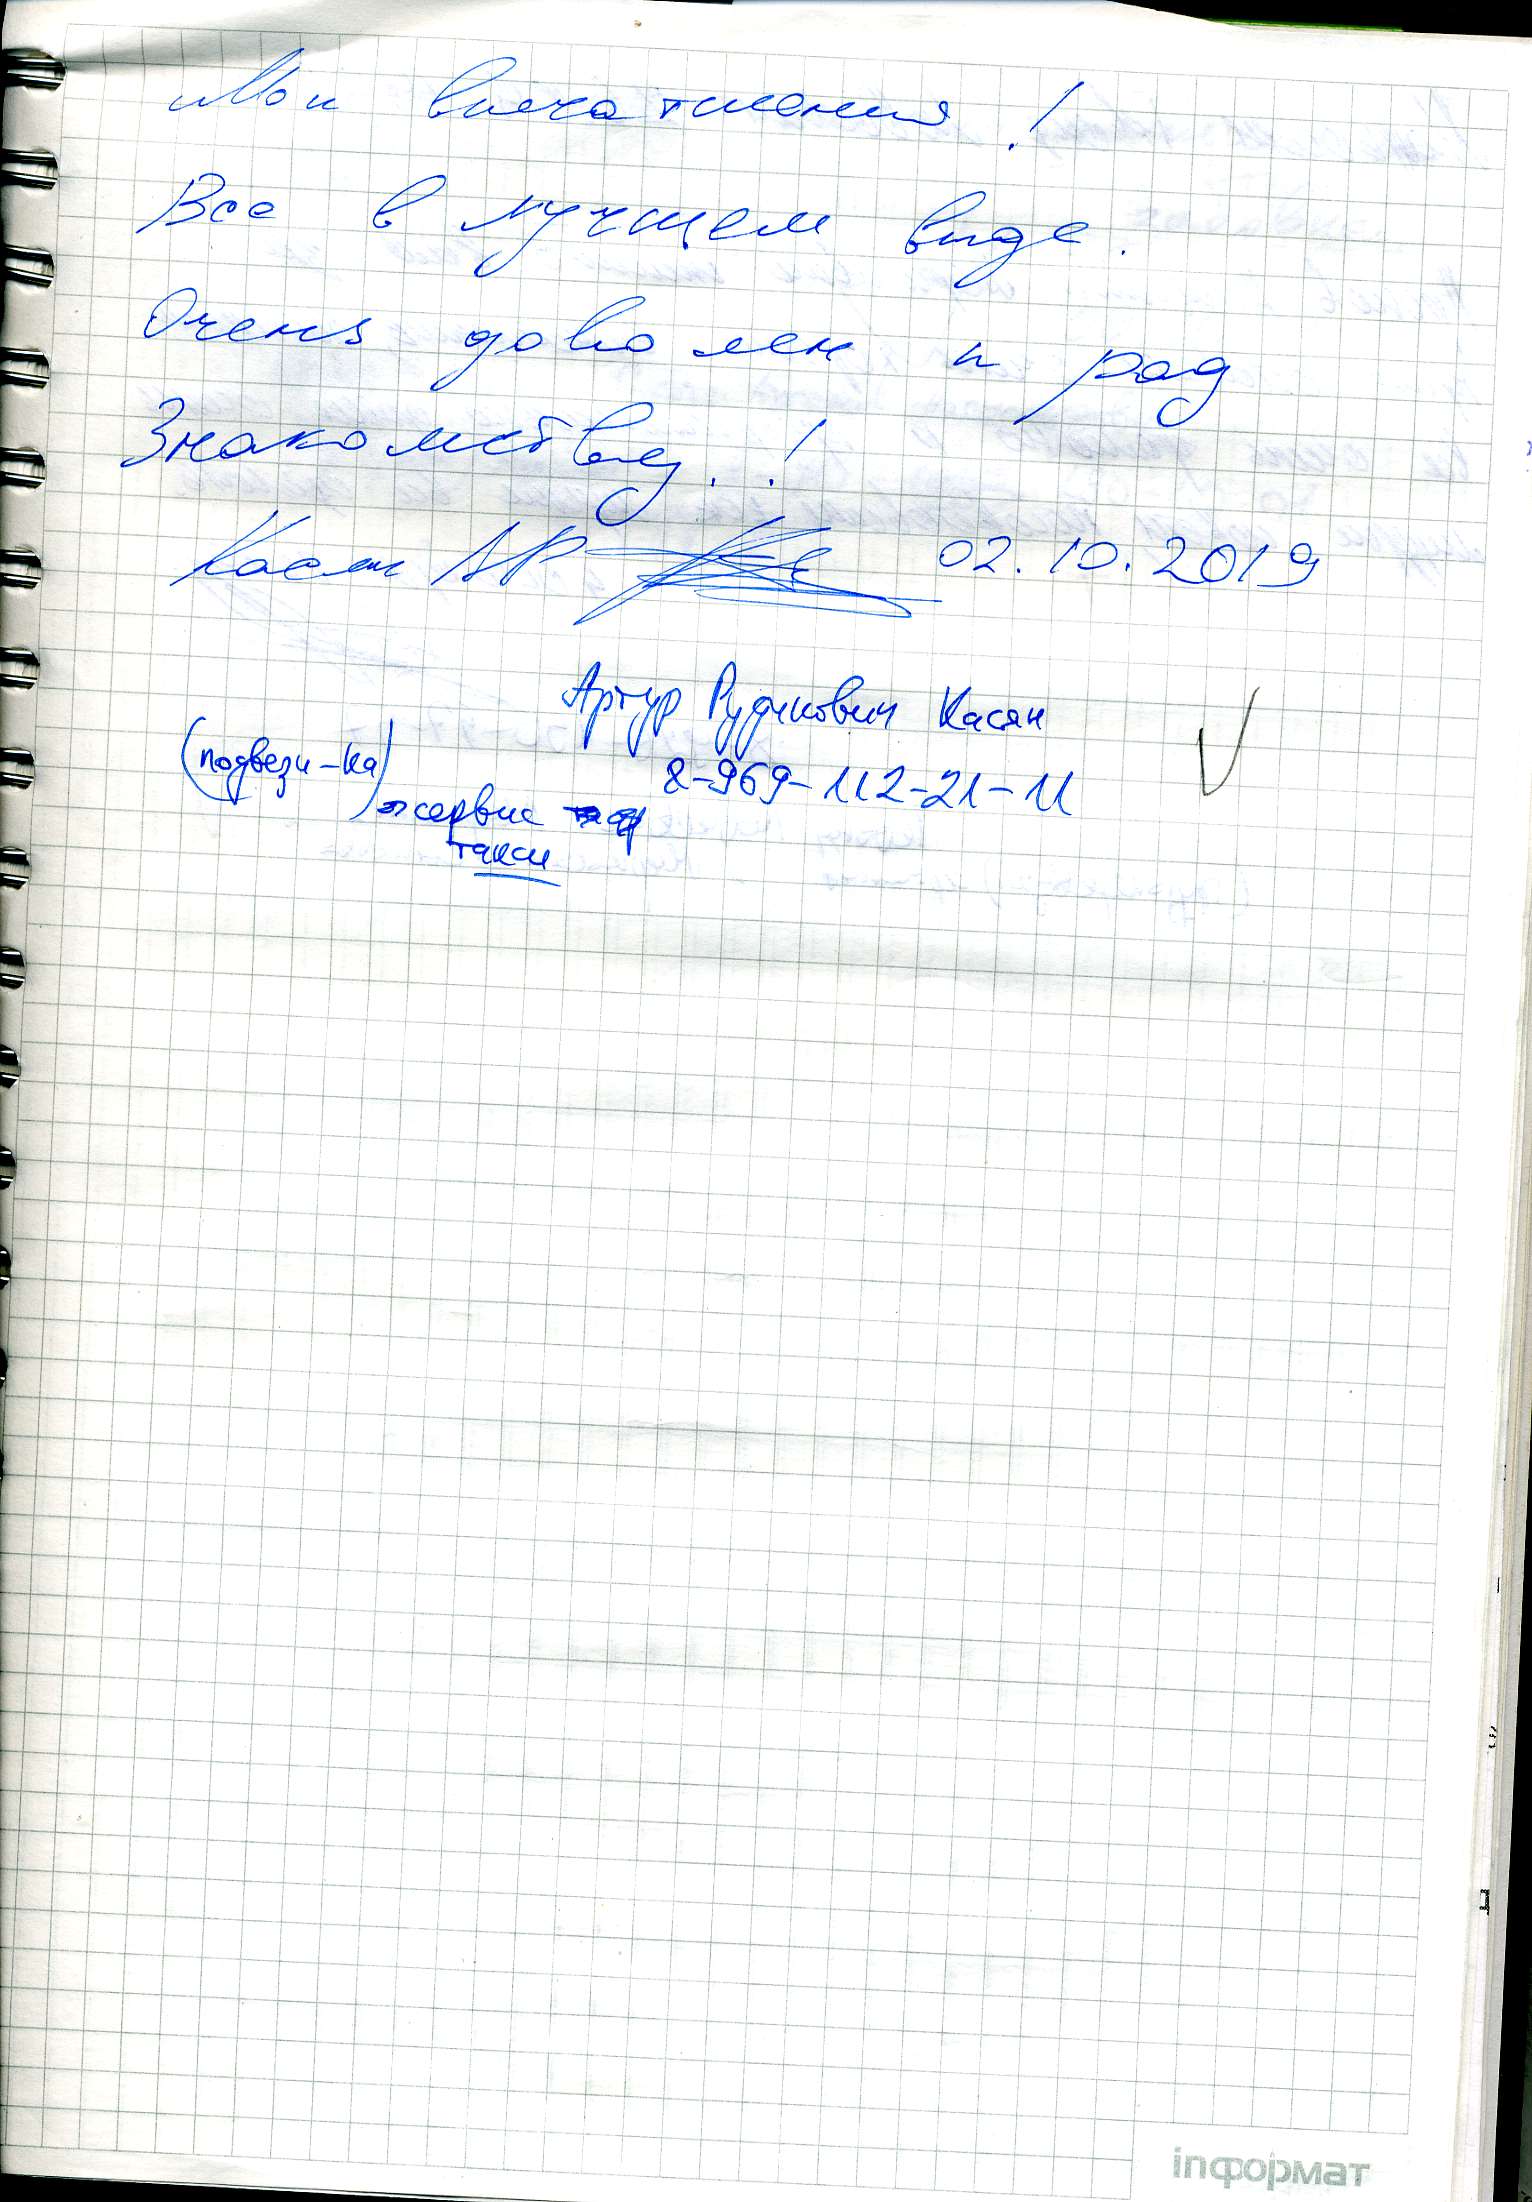 Мои впечатления!
Все в лучшем виде.
Очень доволен и рад
Знакомству.!
Касян АР 02.10.2019
Артур Рудикович Касян
(подвези-ка) 8-969-112-21-11
сервис
такси
inформат